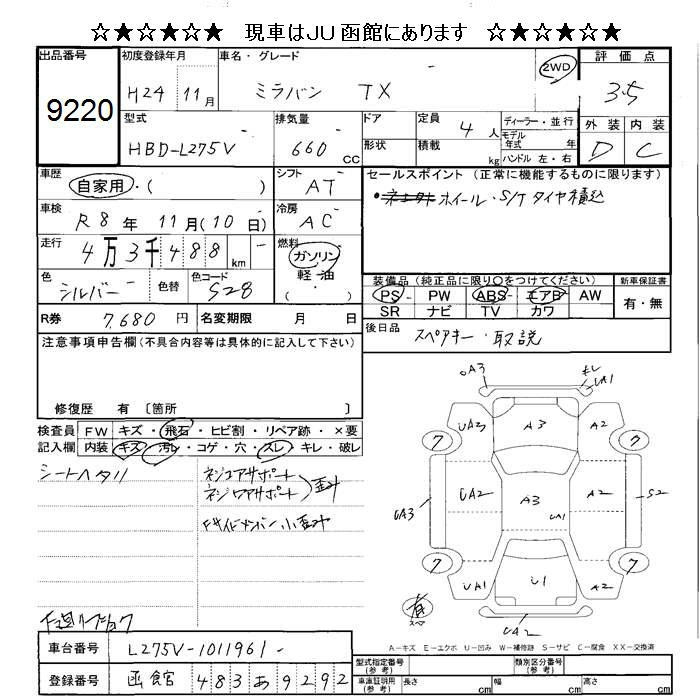 ☆★☆★☆★ 現車はJU函館にあります ☆★☆★☆★
出品番号 初度登録年月 車名・グレード 評価点
9220 H24 11月 ミラバン TX 2WD 3.5
型式 排気量 ドア 定員 ディーラー・並行 外装 内装
HBD-L275V 660 CC 形状 積載 4人 kg モデル年式 年 ハンドル 左・右 D C
車歴 シフト セールスポイント (正常に機能するものに限ります)
自家用・( ) AT ホイール・S/Tタイヤ積込
車検 R8年 11月(10日) 冷房 AC
走行 4万3千488km 燃料 ガソリン 軽油 ( )
装備品 (純正品に限り〇をつけてください) 新車保証書
色 シルバー 色替 色コード S28
PS PW ABS エアB AW 有・無
SR ナビ TV カワ
R券 7,680円 名変期限 月 日
後日品 スペアキー・取説
注意事項申告欄(不具合内容等は具体的に記入して下さい)
修復歴 有 〔箇所 〕
検査員 FW キズ・飛石・ヒビ割・リペア跡・×要
記入欄 内装 キズ・汚レ・コゲ・穴・スレ・キレ・破レ
シートヘタリ
ネジコアサポート
ネジロアサポート
歪み
A3 UA1
UA3 A3 A2
7 7
UA3 UA2 A3 A2 S2
UA1
7 7
UA1 U1 A2
有 スペア
UA2
A-キズ E-エクボ U-凹み W-補修跡 S-サビ C-腐食 XX-交換済
車台番号 L275V-1011961
登録番号 函館 483 あ 9292
型式指定番号(参考) 類別区分番号(参考)
車庫証明用(参考) 長さ cm 幅 cm 高さ cm